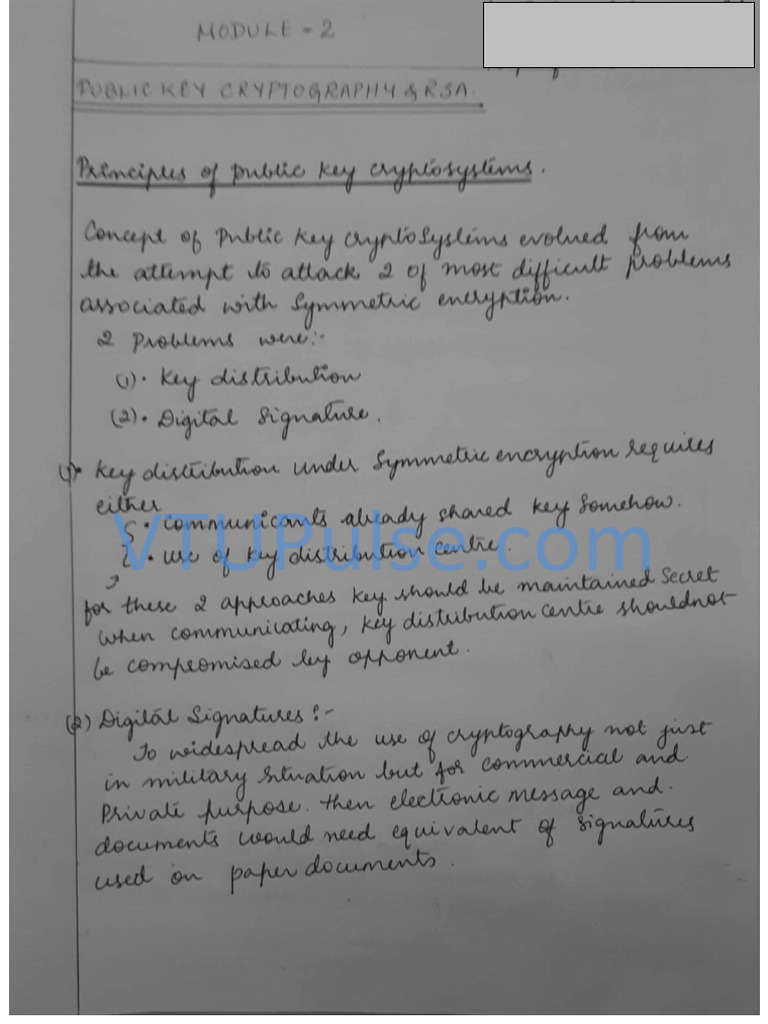 MODULE - 2
PUBLIC KEY CRYPTOGRAPHY & RSA.
Principles of public key cryptosystems.
Concept of Public key cryptosystems evolved from
the attempt to attack 2 of most difficult problems
associated with Symmetric encryption.
2 Problems were:-
(1). Key distribution
(2). Digital Signature.
(1). Key distribution under Symmetric encryption requires
either
• communicants already shared key somehow.
• use of key distribution centre.
for these 2 approaches key should be maintained secret
when communicating, key distribution centre should not
be compromised by opponent.
(2) Digital Signatures :-
To widespread the use of cryptography not just
in military situation but for commercial and
Private purpose. then electronic message and.
documents would need equivalent of signatures
used on paper documents.
VTUPulse.com